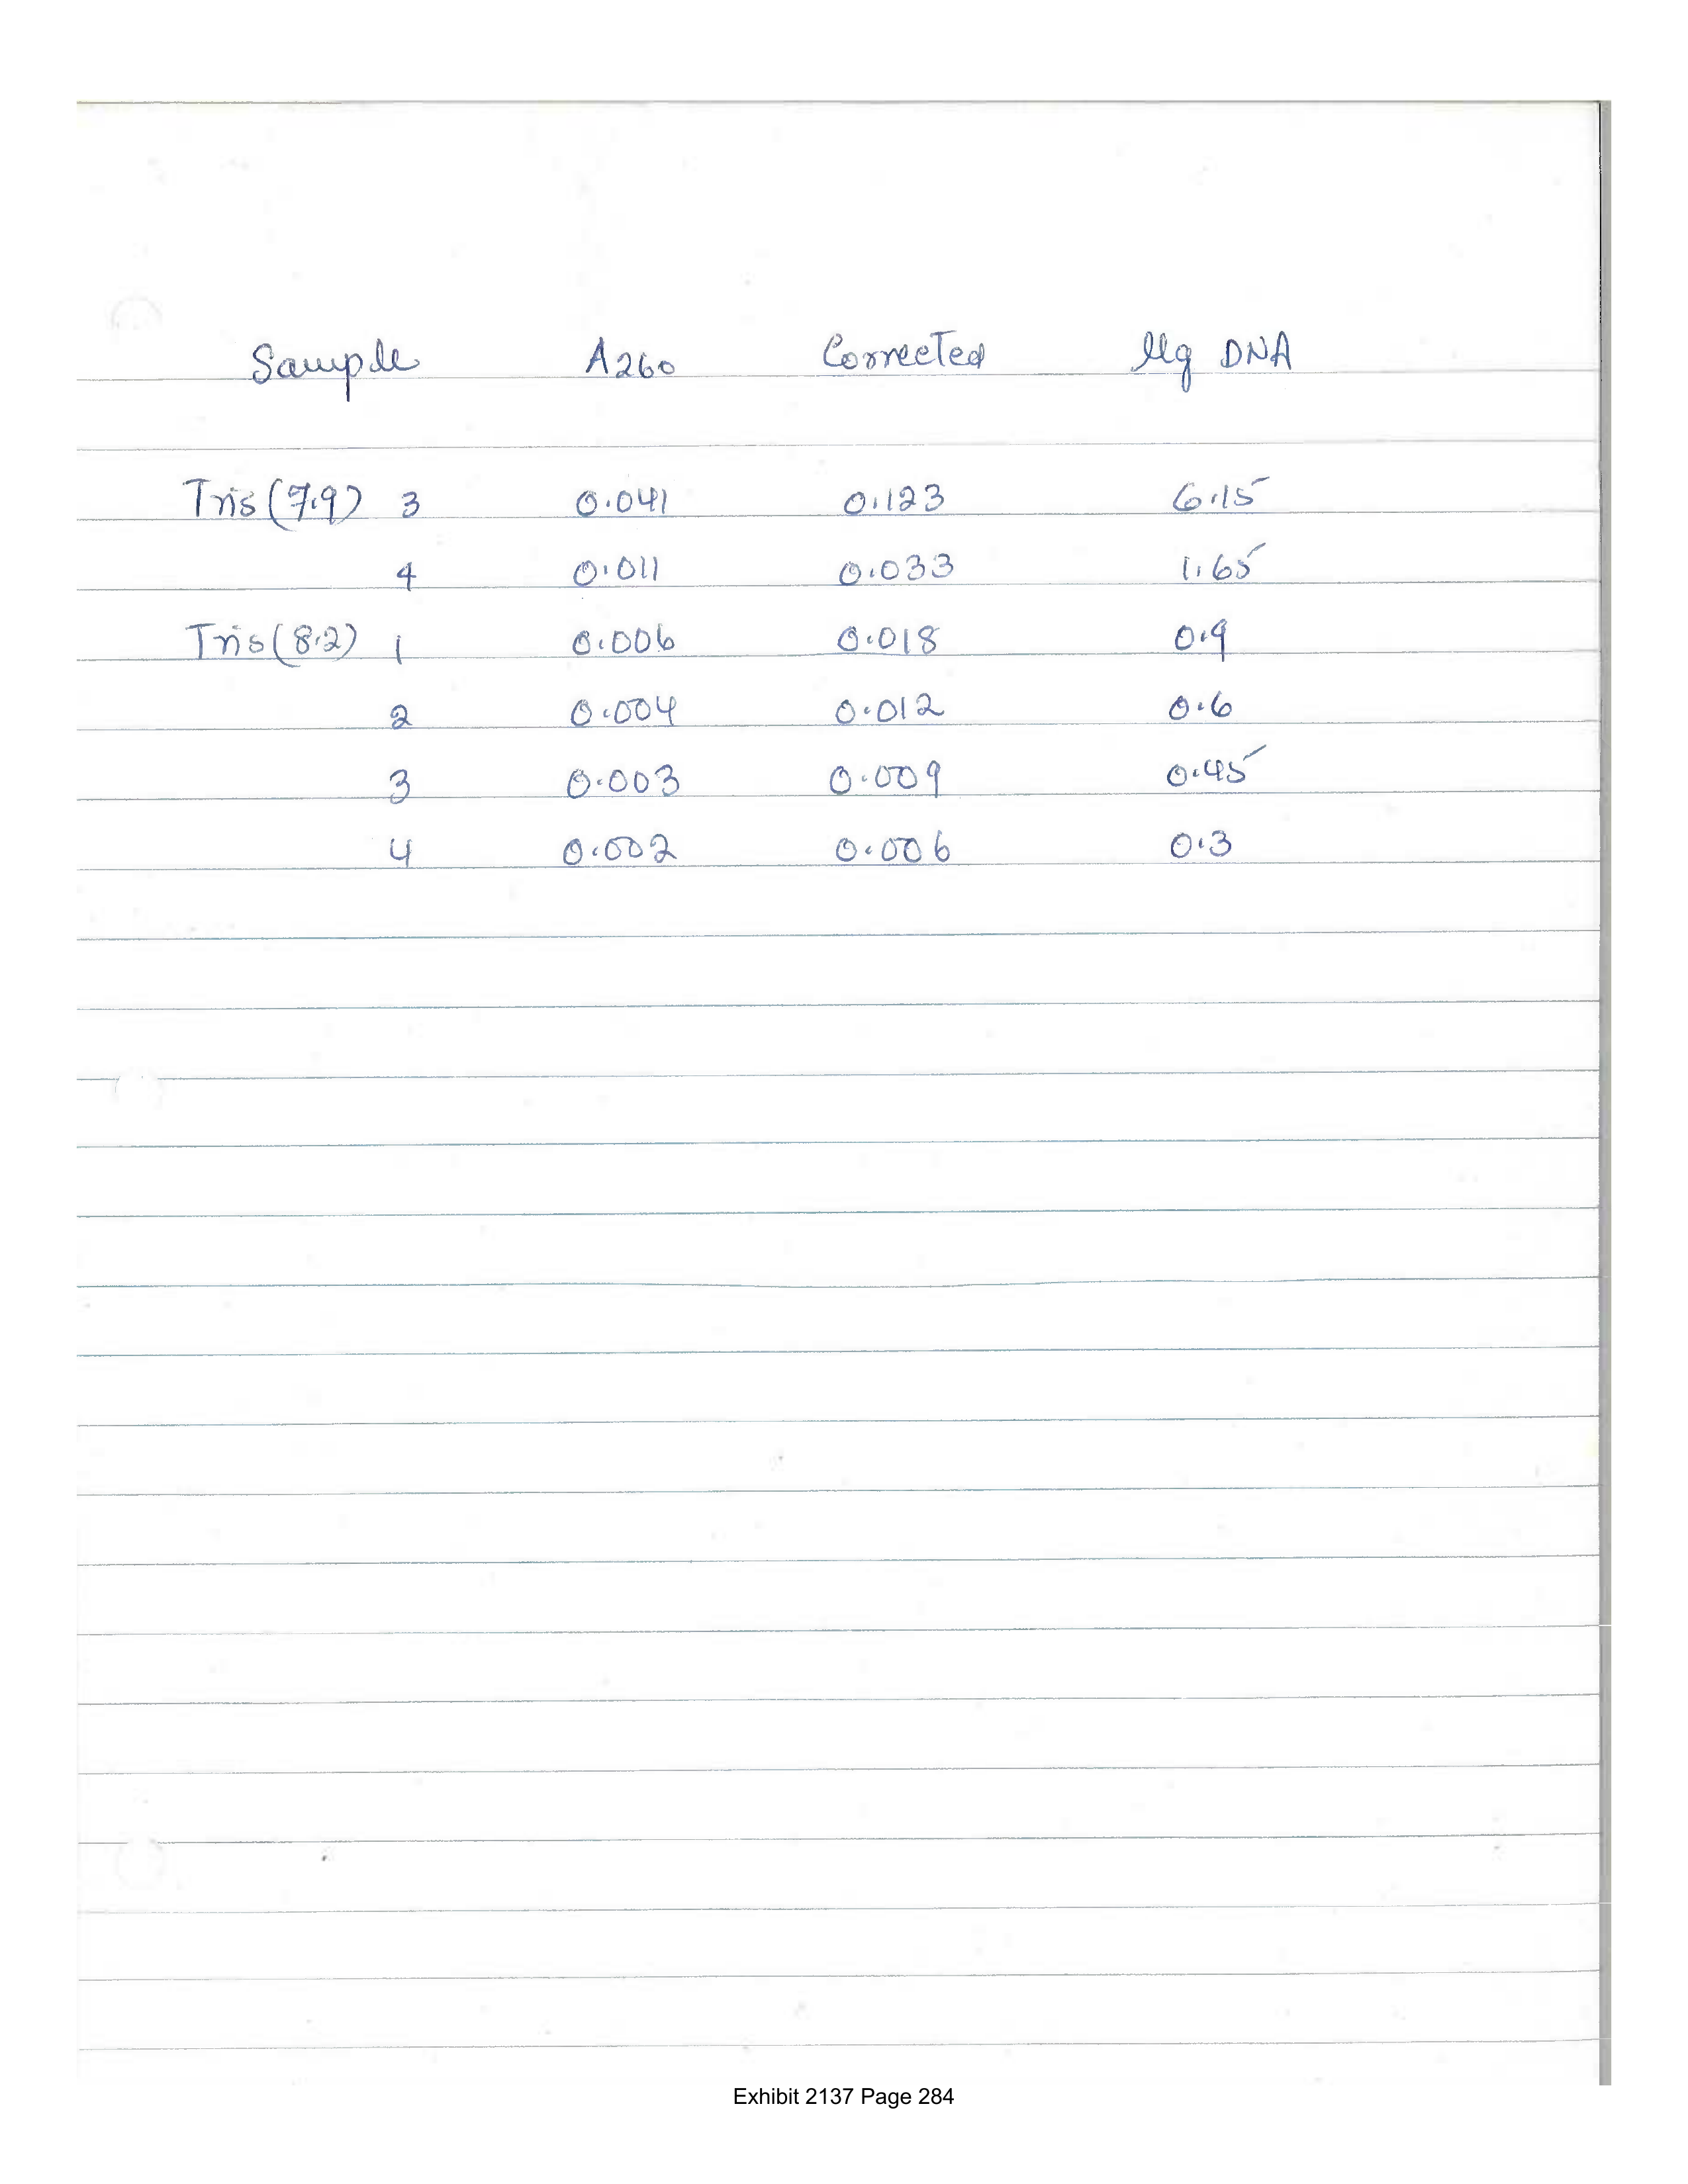 Sample A260 Corrected µg DNA
Tris (7.9) 3 0.041 0.123 6.15
4 0.011 0.033 1.65
Tris (8.2) 1 0.006 0.018 0.9
2 0.004 0.012 0.6
3 0.003 0.009 0.45
4 0.002 0.006 0.3
Exhibit 2137 Page 284